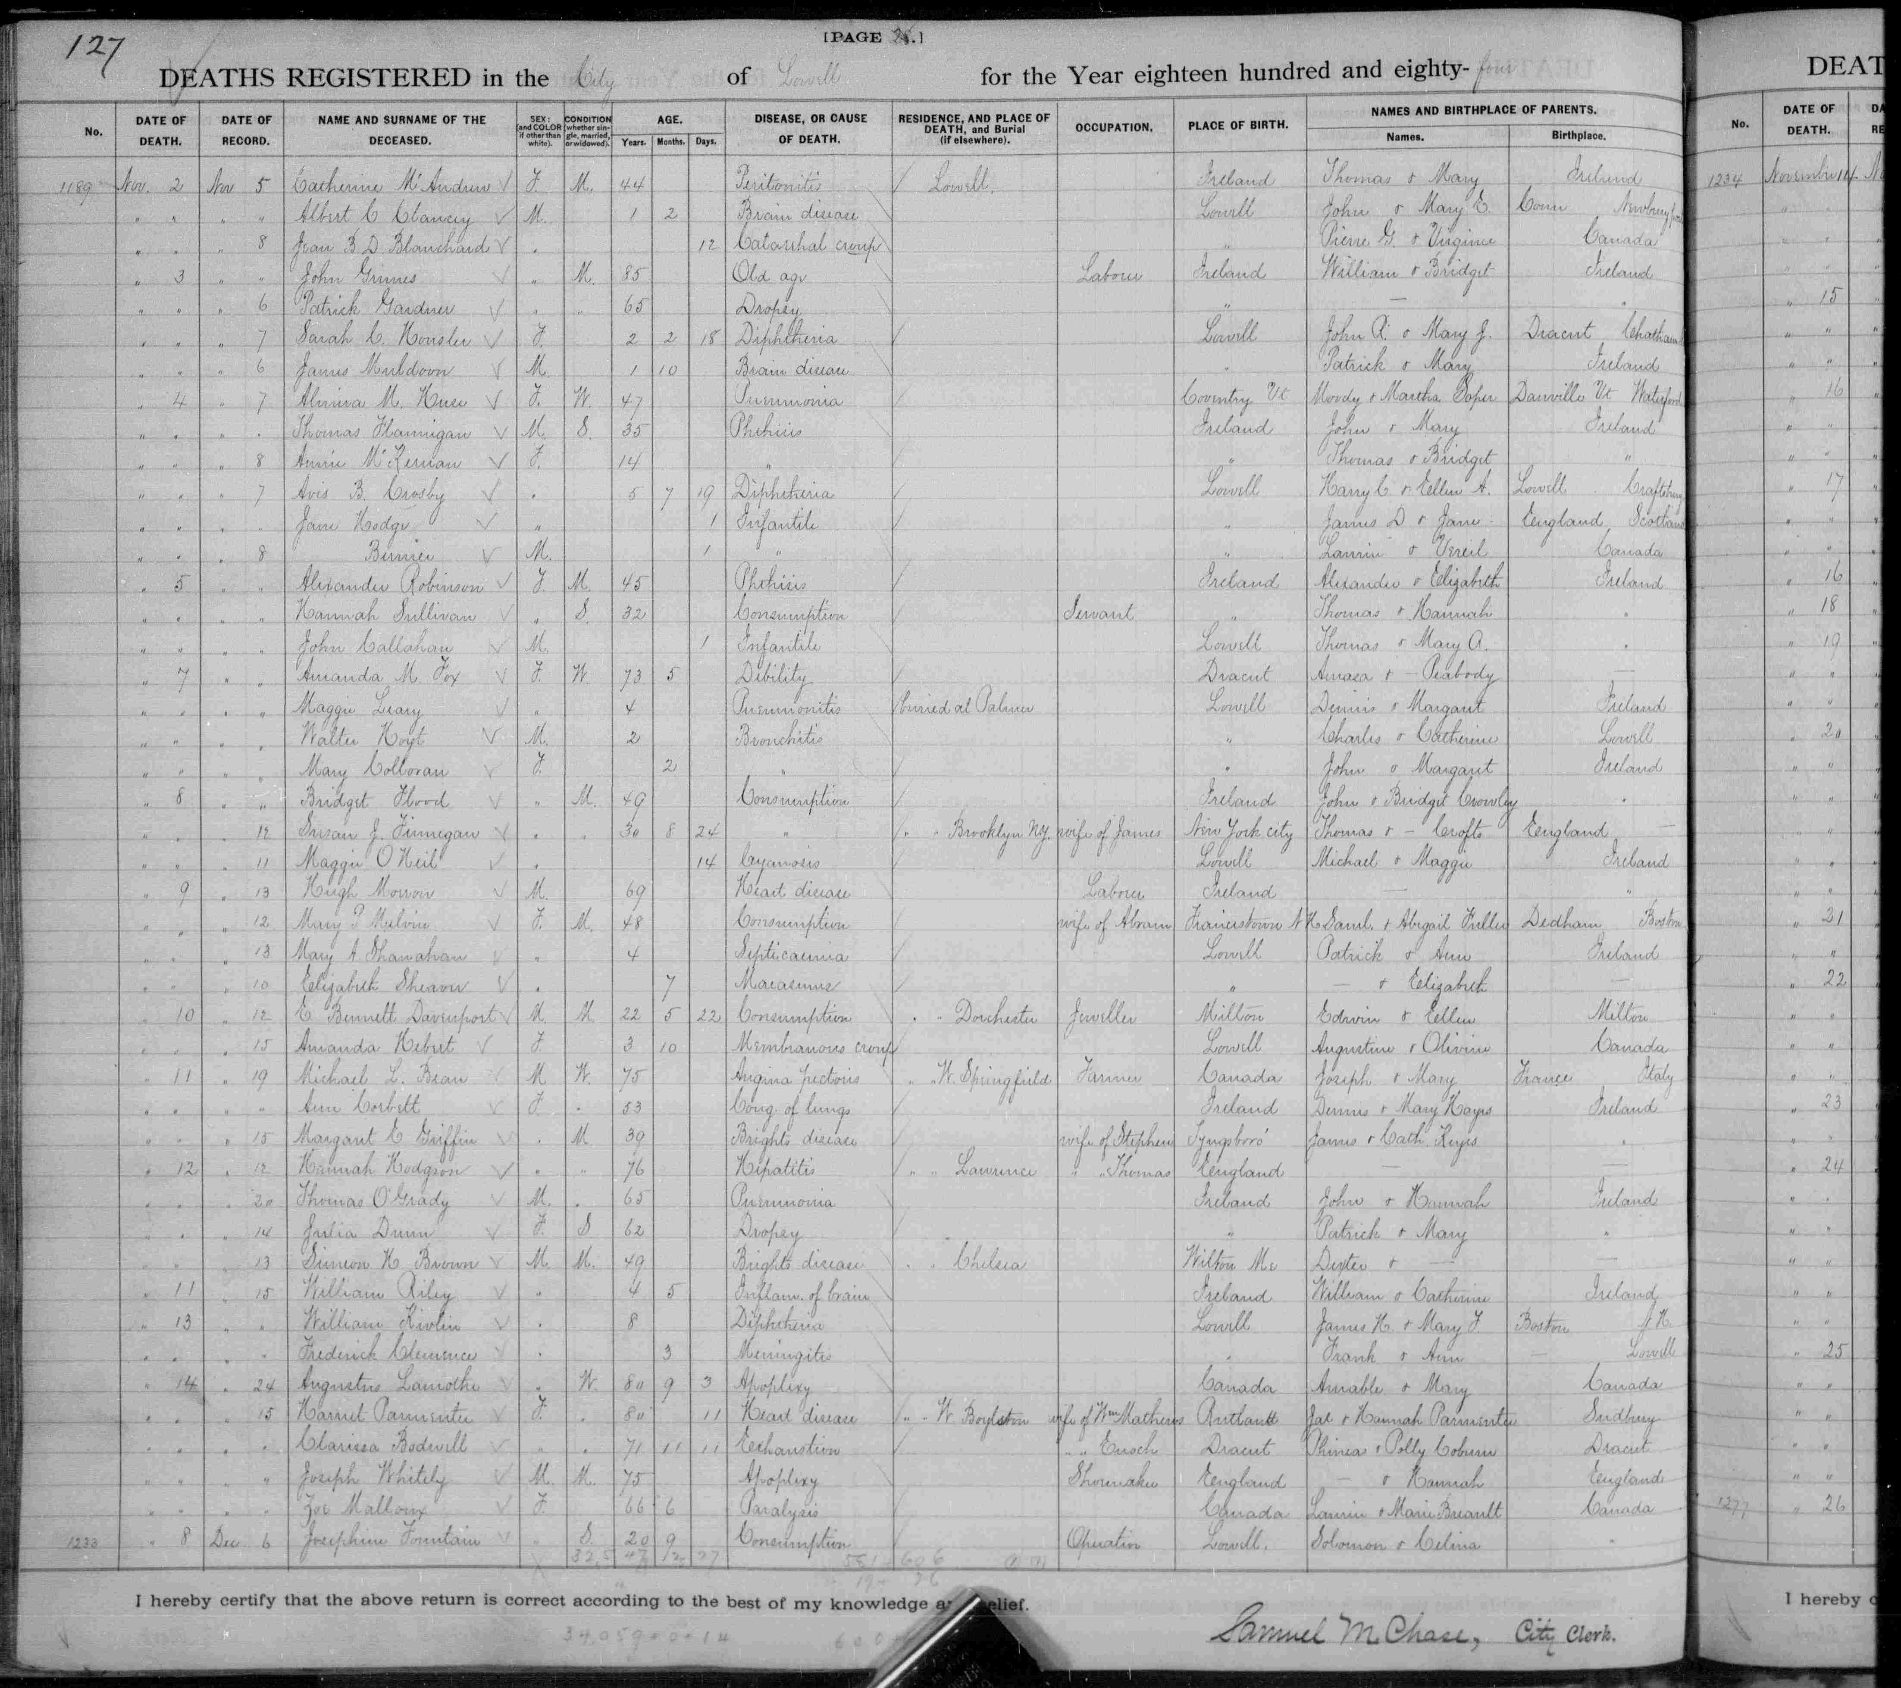 127
[PAGE .]
DEATHS REGISTERED in the City of Lowell for the Year eighteen hundred and eighty-four
No. DATE OF DEATH. DATE OF RECORD. NAME AND SURNAME OF THE DECEASED. SEX: (and COLOR if other than white). CONDITION (whether single, married, or widowed). AGE. Years. Months. Days. DISEASE, OR CAUSE OF DEATH. RESIDENCE, AND PLACE OF DEATH, and Burial (if elsewhere). OCCUPATION. PLACE OF BIRTH. NAMES AND BIRTHPLACE OF PARENTS. Names. Birthplace.
1189 Nov. 2 Nov 5 Catherine McAndrew √ F. M. 44 Peritonitis / Lowell. Ireland Thomas & Mary Ireland
" " " " Albert C Clancy √ M. 1 2 Brain disease Lowell John & Mary E. Conn Newburyport
" " " 8 Jean B. D. Blanchard √ " 12 Catarrhal croup " Pierre G. & Virginie Canada
" 3 " " John Grimes √ " M. 85 Old age Laborer Ireland William & Bridget Ireland
" " " 6 Patrick Gardner √ " " 65 Dropsy " — "
" " " 7 Sarah C. Hensler √ F. 2 2 18 Diphtheria / Lowell John R. & Mary J. Dracut Chatham
" " " 6 James Muldoon √ M. 1 10 Brain disease " Patrick & Mary Ireland
" 4 " 7 Almira M. Huse √ F. W. 47 Pneumonia / Coventry Vt Moody & Martha Soper Danville Vt Waterford
" " " " Thomas Flannigan √ M. S. 35 Phthisis Ireland John & Mary Ireland
" " " 8 Annie McKernan √ F. 14 " / " Thomas & Bridget "
" " " 7 Avis B. Crosby √ " 5 7 19 Diphtheria / Lowell Harry C. & Ellen A. Lowell Craftsbury
" " " " Jane Hodge √ " 1 Infantile / " James D & Jane England Scotland
" " " 8 Bernier √ M. 1 " / " & Canada
" 5 " " Alexander Robinson √ F. M. 45 Phthisis / Ireland Alexander & Elizabeth Ireland
" " " " Hannah Sullivan √ " S. 32 Consumption / Servant " Thomas & Hannah "
" " " " John Callahan √ M. 1 Infantile Lowell Thomas & Mary A. "
" 7 " " Amanda M. Fox √ F. W. 73 5 Debility / Dracut Amasa & — Peabody —
" " " " Maggie Leary √ " 4 Pneumonitis / buried at Palmer Lowell Dennis & Margaret Ireland
" " " " Walter Hoyt √ M. 2 Bronchitis " Charles & Catherine Lowell
" " " " Mary Colloran √ F. 2 " / " John & Margaret Ireland
" 8 " " Bridget Flood √ " M. 49 Consumption / Ireland John & Bridget Crowley "
" " " 12 Susan J. Finnegan √ " " 30 8 24 " / " " Brooklyn N.Y. wife of James New York city Thomas & — Crofts England —
" " " 11 Maggie O'Neil √ " 14 Cyanosis / Lowell Michael & Maggie Ireland
" 9 " 13 Hugh Morrow √ M. 69 Heart disease Laborer Ireland — "
" " " 12 Mary P. Melvin √ F. M. 48 Consumption / wife of Abram Francestown N.H. Saml. & Abigail Fuller Dedham Boston
" " " 13 Mary A Shanahan √ " 4 Septicaemia Lowell Patrick & Ann Ireland
" " " 10 Elizabeth √ " 7 Marasmus / " — & Elizabeth —
" 10 " 12 E Bennett Davenport √ M. M. 22 5 22 Consumption " " Dorchester Jeweller Milton Edwin & Ellen Milton
" " " 15 Amanda Hebert √ F. 3 10 Membranous croup Lowell Augustine & Olivine Canada
" 11 " 19 Michael L. Bean √ M W. 75 Angina pectoris " " W. Springfield Farmer Canada Joseph & Mary France Italy
" " " " Ann Corbett √ F. " 53 Cong. of lungs / Ireland Dennis & Mary Hayes Ireland
" " " 15 Margaret E Griffin √ " M 39 Brights disease / wife of Stephen Tyngsboro' James & Cath. Keyes "
" 12 " 12 Hannah Hodgson √ " " 76 Hepatitis / " " Lawrence " " Thomas England — —
" " " 20 Thomas O'Grady √ M. " 65 Pneumonia Ireland John & Hannah Ireland
" " " 14 Julia Dunn √ F. S 62 Dropsy / " Patrick & Mary "
" " " 13 Simeon H. Brown √ M. M. 49 Brights disease " " Chelsea Wilton Me Dexter & — —
" 11 " 15 William Riley √ " 4 5 Inflam. of brain Ireland William & Catherine Ireland
" 13 " " William Kivlin √ " 8 Diphtheria Lowell James H. & Mary F. Boston N.H.
" " " " Frederick Clemence √ " 3 Meningitis " Frank & Ann — Lowell
" 14 " 24 Augustus Lamothe √ " W. 80 9 3 Apoplexy Canada Amable & Mary Canada
" " " 15 Harriet Parmenter √ F. " 80 11 Heart disease / " " W. Boylston wife of Wm Mathews Rutland & Hannah Parmenter Sudbury
" " " " Clarissa Bodwell √ " " 71 11 11 Exhaustion / " " Enoch Dracut Phineas & Polly Coburn Dracut
" " " " Joseph Whitely √ M. M. 75 Apoplexy Shoemaker England — & Hannah England
" " " " Zoe Malloux √ F. 66 6 Paralysis / Canada & Marie Breault Canada
1233 " 8 Dec 6 Josephine Fountain √ " S. 20 9 Consumption Operative Lowell. Solomon & Celina "
I hereby certify that the above return is correct according to the best of my knowledge an elief.
Samuel M Chase, City Clerk.
DEAT
No. DATE OF DEATH. DA RE
1234 November 14 No
" 15
" 16
" 17
" 16
" 18
" 19
" 20
" 21
" 22
" 23
" 24
" 25
1277 " 26
I hereby c